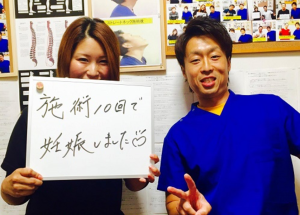 施術10回で
妊娠しました♡